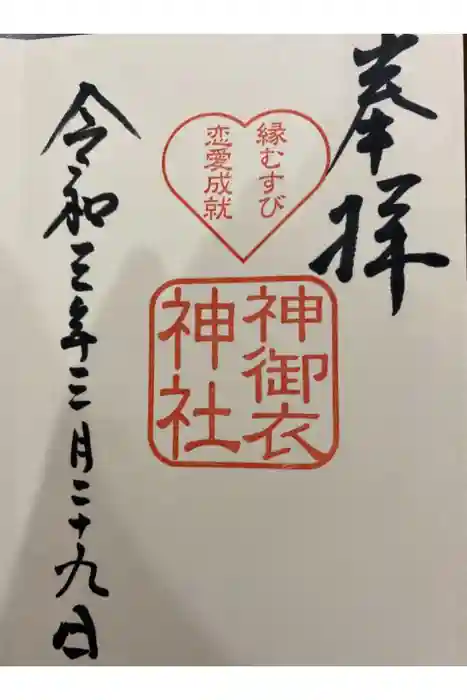 奉拝
縁むすび
恋愛成就
神御衣
神社
令和三年三月二十九日